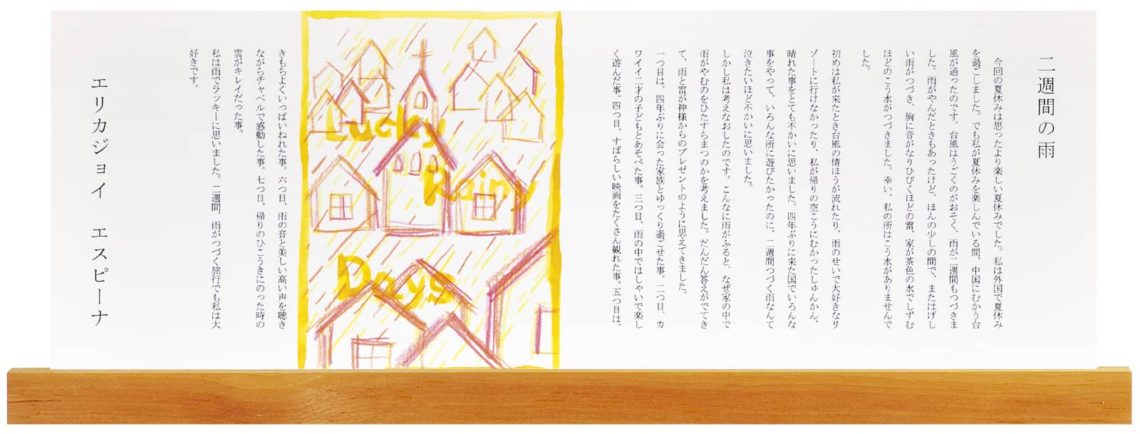 二週間の雨
今回の夏休みは思ったより楽しい夏休みでした。私は外国で夏休み
を過ごしました。でも私が夏休みを楽しんでいる間、中国にむかう台
風が通ったのです。台風はうごくのがおそく、雨が二週間もつづきま
した。雨がやんだときもあったけど、ほんの少しの間で、またはげし
い雨がつづき、胸に音がなりひびくほどの雷、家が茶色の水でしずむ
ほどのこう水がつづきました。幸い、私の所はこう水がありませんで
した。
初めは私が来たとき台風の情ほうが流れたり、雨のせいで大好きなリ
ゾートに行けなかったり、私が帰りの空こうにむかったしゅんかん、
晴れた事をとても不かいに思いました。四年ぶりに来た国でいろんな
事をやって、いろんな所に遊びたかったのに、二週間つづく雨なんて
泣きたいほど不かいに思いました。
しかし私は考えなおしたのです。こんなに雨がふると、なぜ家の中で
雨がやむのをひたすらまつのかを考えました。だんだん答えがでてき
て、雨と雷が神様からのプレゼントのように思えてきました。
一つ目は、四年ぶりに会った家族とゆっくり過ごせた事。二つ目、カ
ワイイ二才の子どもとあそべた事。三つ目、雨の中ではしゃいで楽し
く遊んだ事。四つ目、すばらしい映画をたくさん観れた事。五つ目は、
Lucky
Rainy
Days
きもちよくいっぱいねれた事。六つ目、雨の音と美しい高い声を聴き
ながらチャペルで感動した事。七つ目、帰りのひこうきにのった時の
雲がキレイだった事。
私は雨でラッキーに思いました。二週間、雨がつづく旅行でも私は大
好きです。
エリカジョイ　エスピーナ